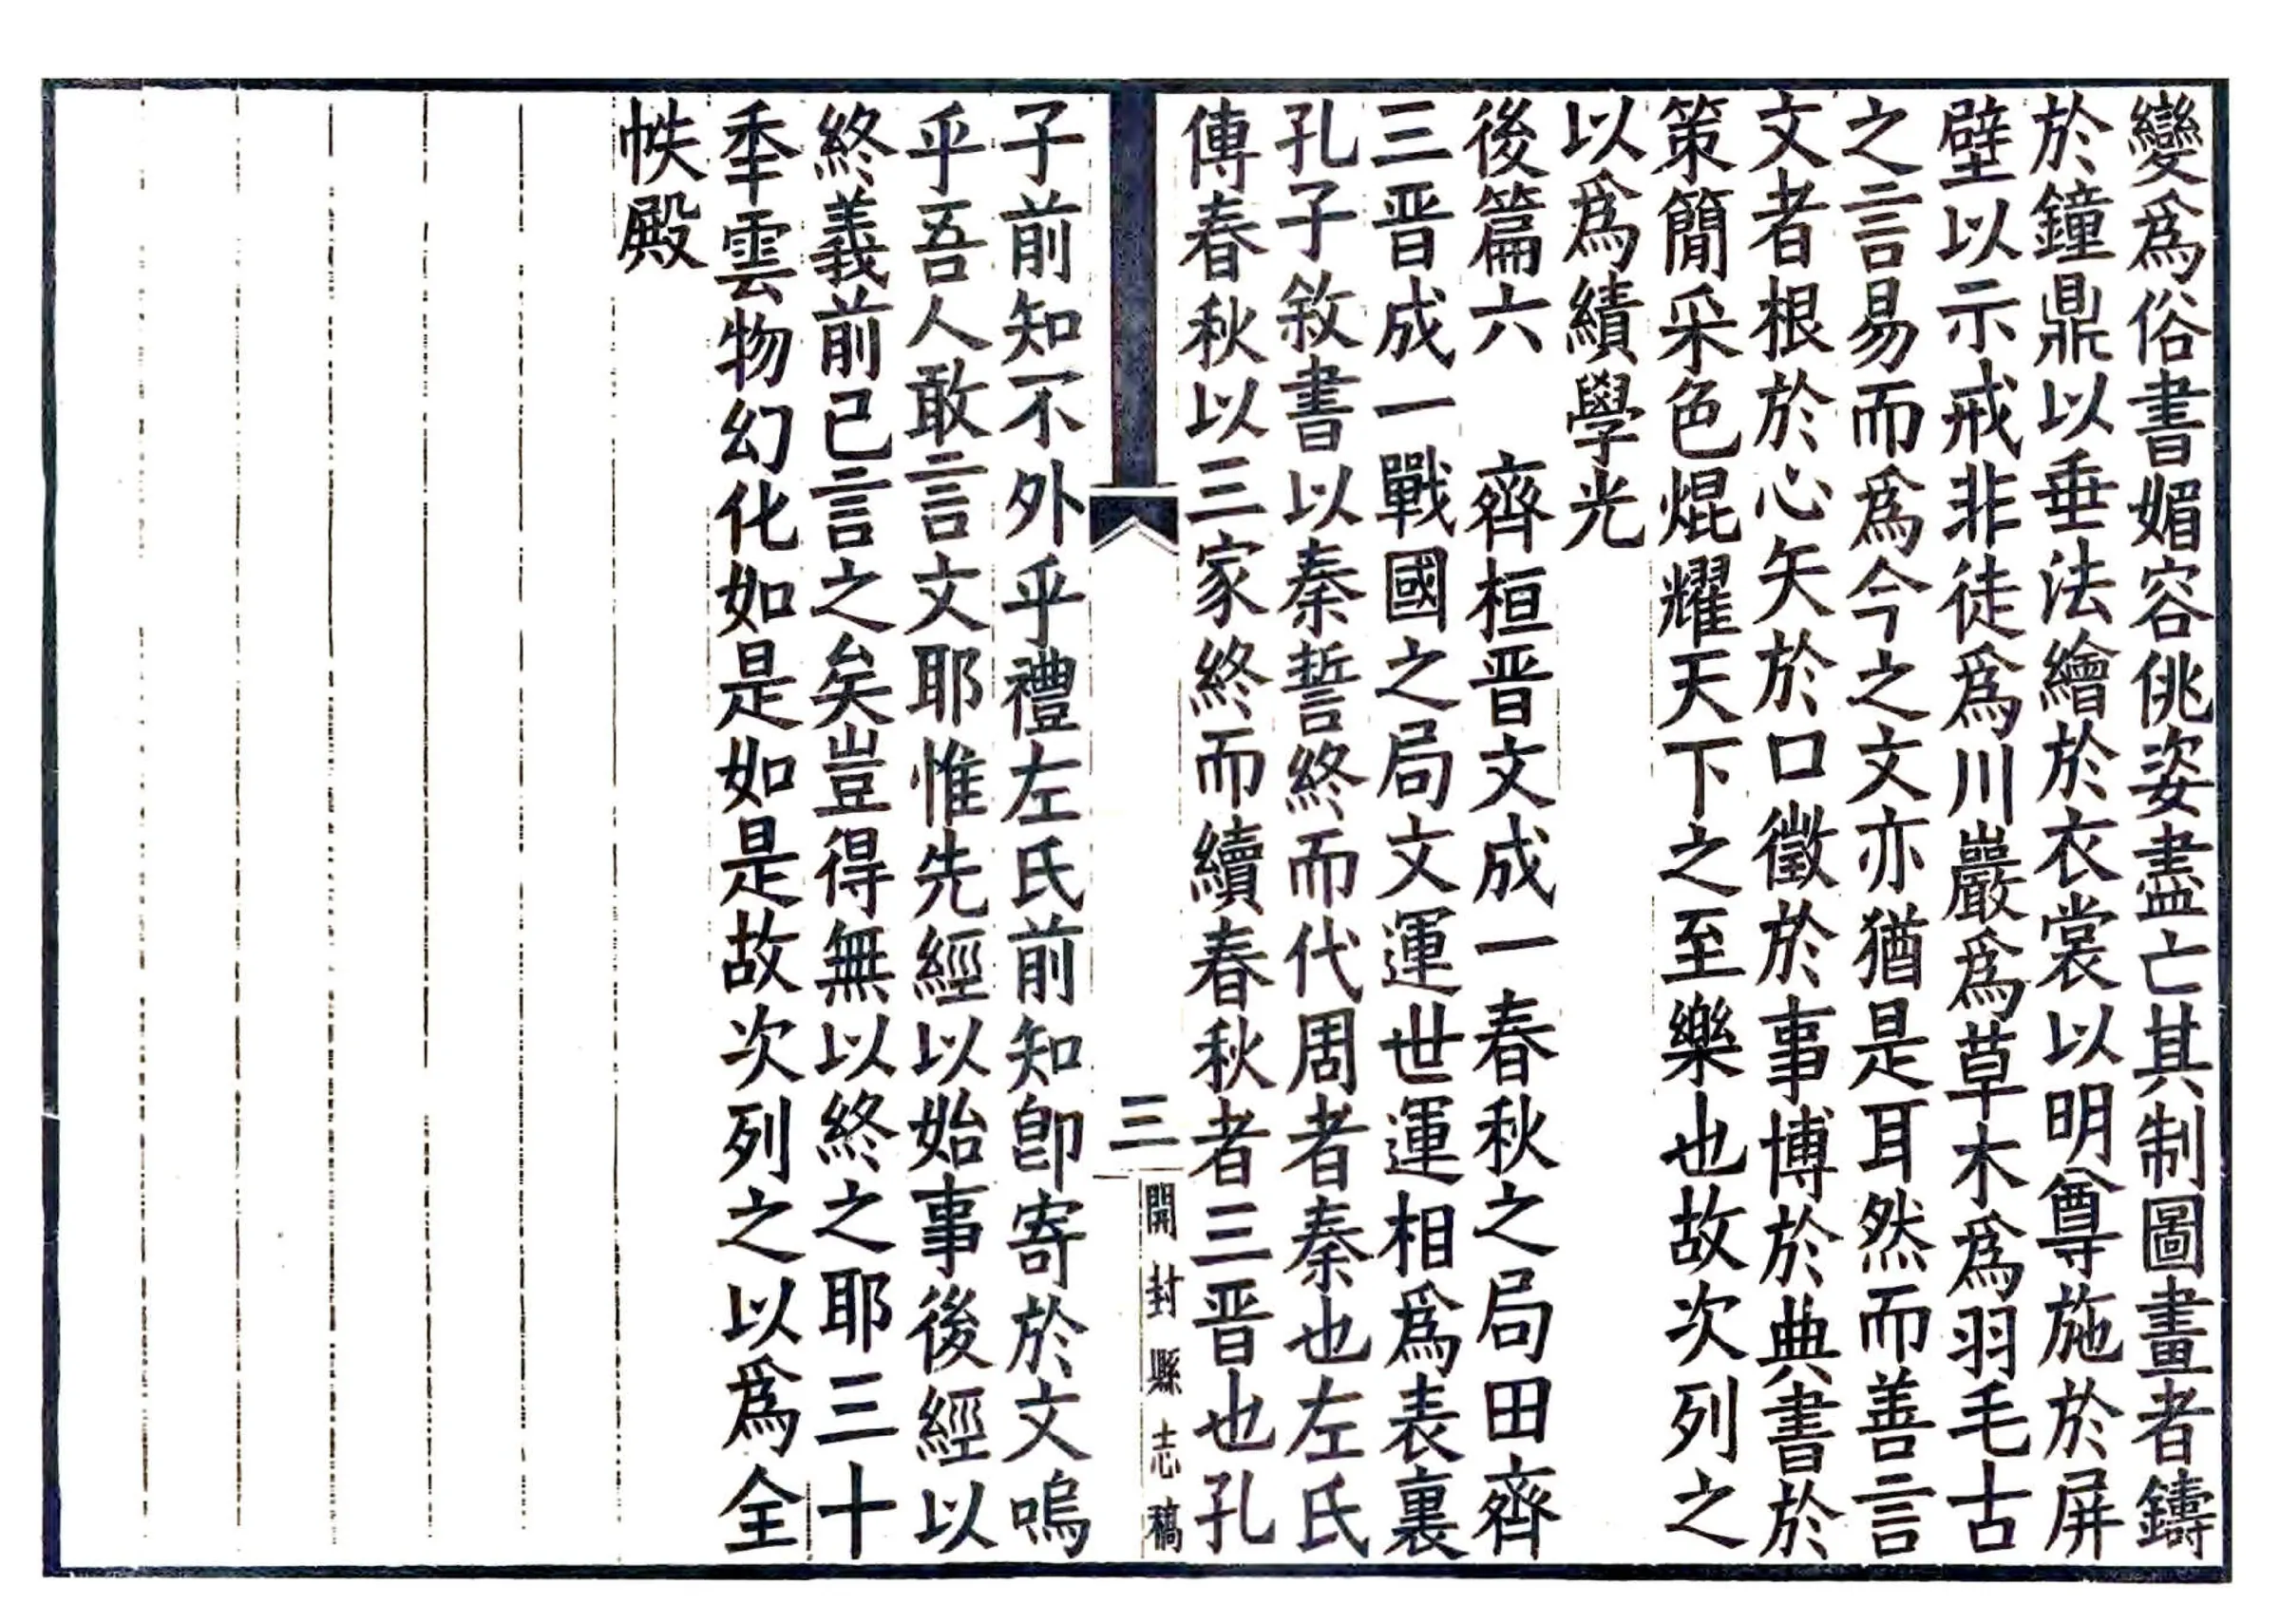 變爲俗書媚容佻姿盡亡其制圖畫者鑄
於鐘鼎以垂法繪於衣裳以明尊施於屏
壁以示戒非徒爲川巖爲草木爲羽毛古
之言易而爲今之文亦猶是耳然而善言
文者根於心矢於口徵於事博於典書於
策簡采色焜耀天下之至樂也故次列之
以爲績學光
後篇六　齊桓晋文成一春秋之局田齊
三晋成一戰國之局文運世運相爲表裏
孔子敘書以秦誓終而代周者秦也左氏
傳春秋以三家終而續春秋者三晋也孔
三
開封縣志稿
子前知不外乎禮左氏前知卽寄於文嗚
乎吾人敢言文耶惟先經以始事後經以
終義前已言之矣豈得無以終之耶三十
秊雲物幻化如是如是故次列之以爲全
帙殿